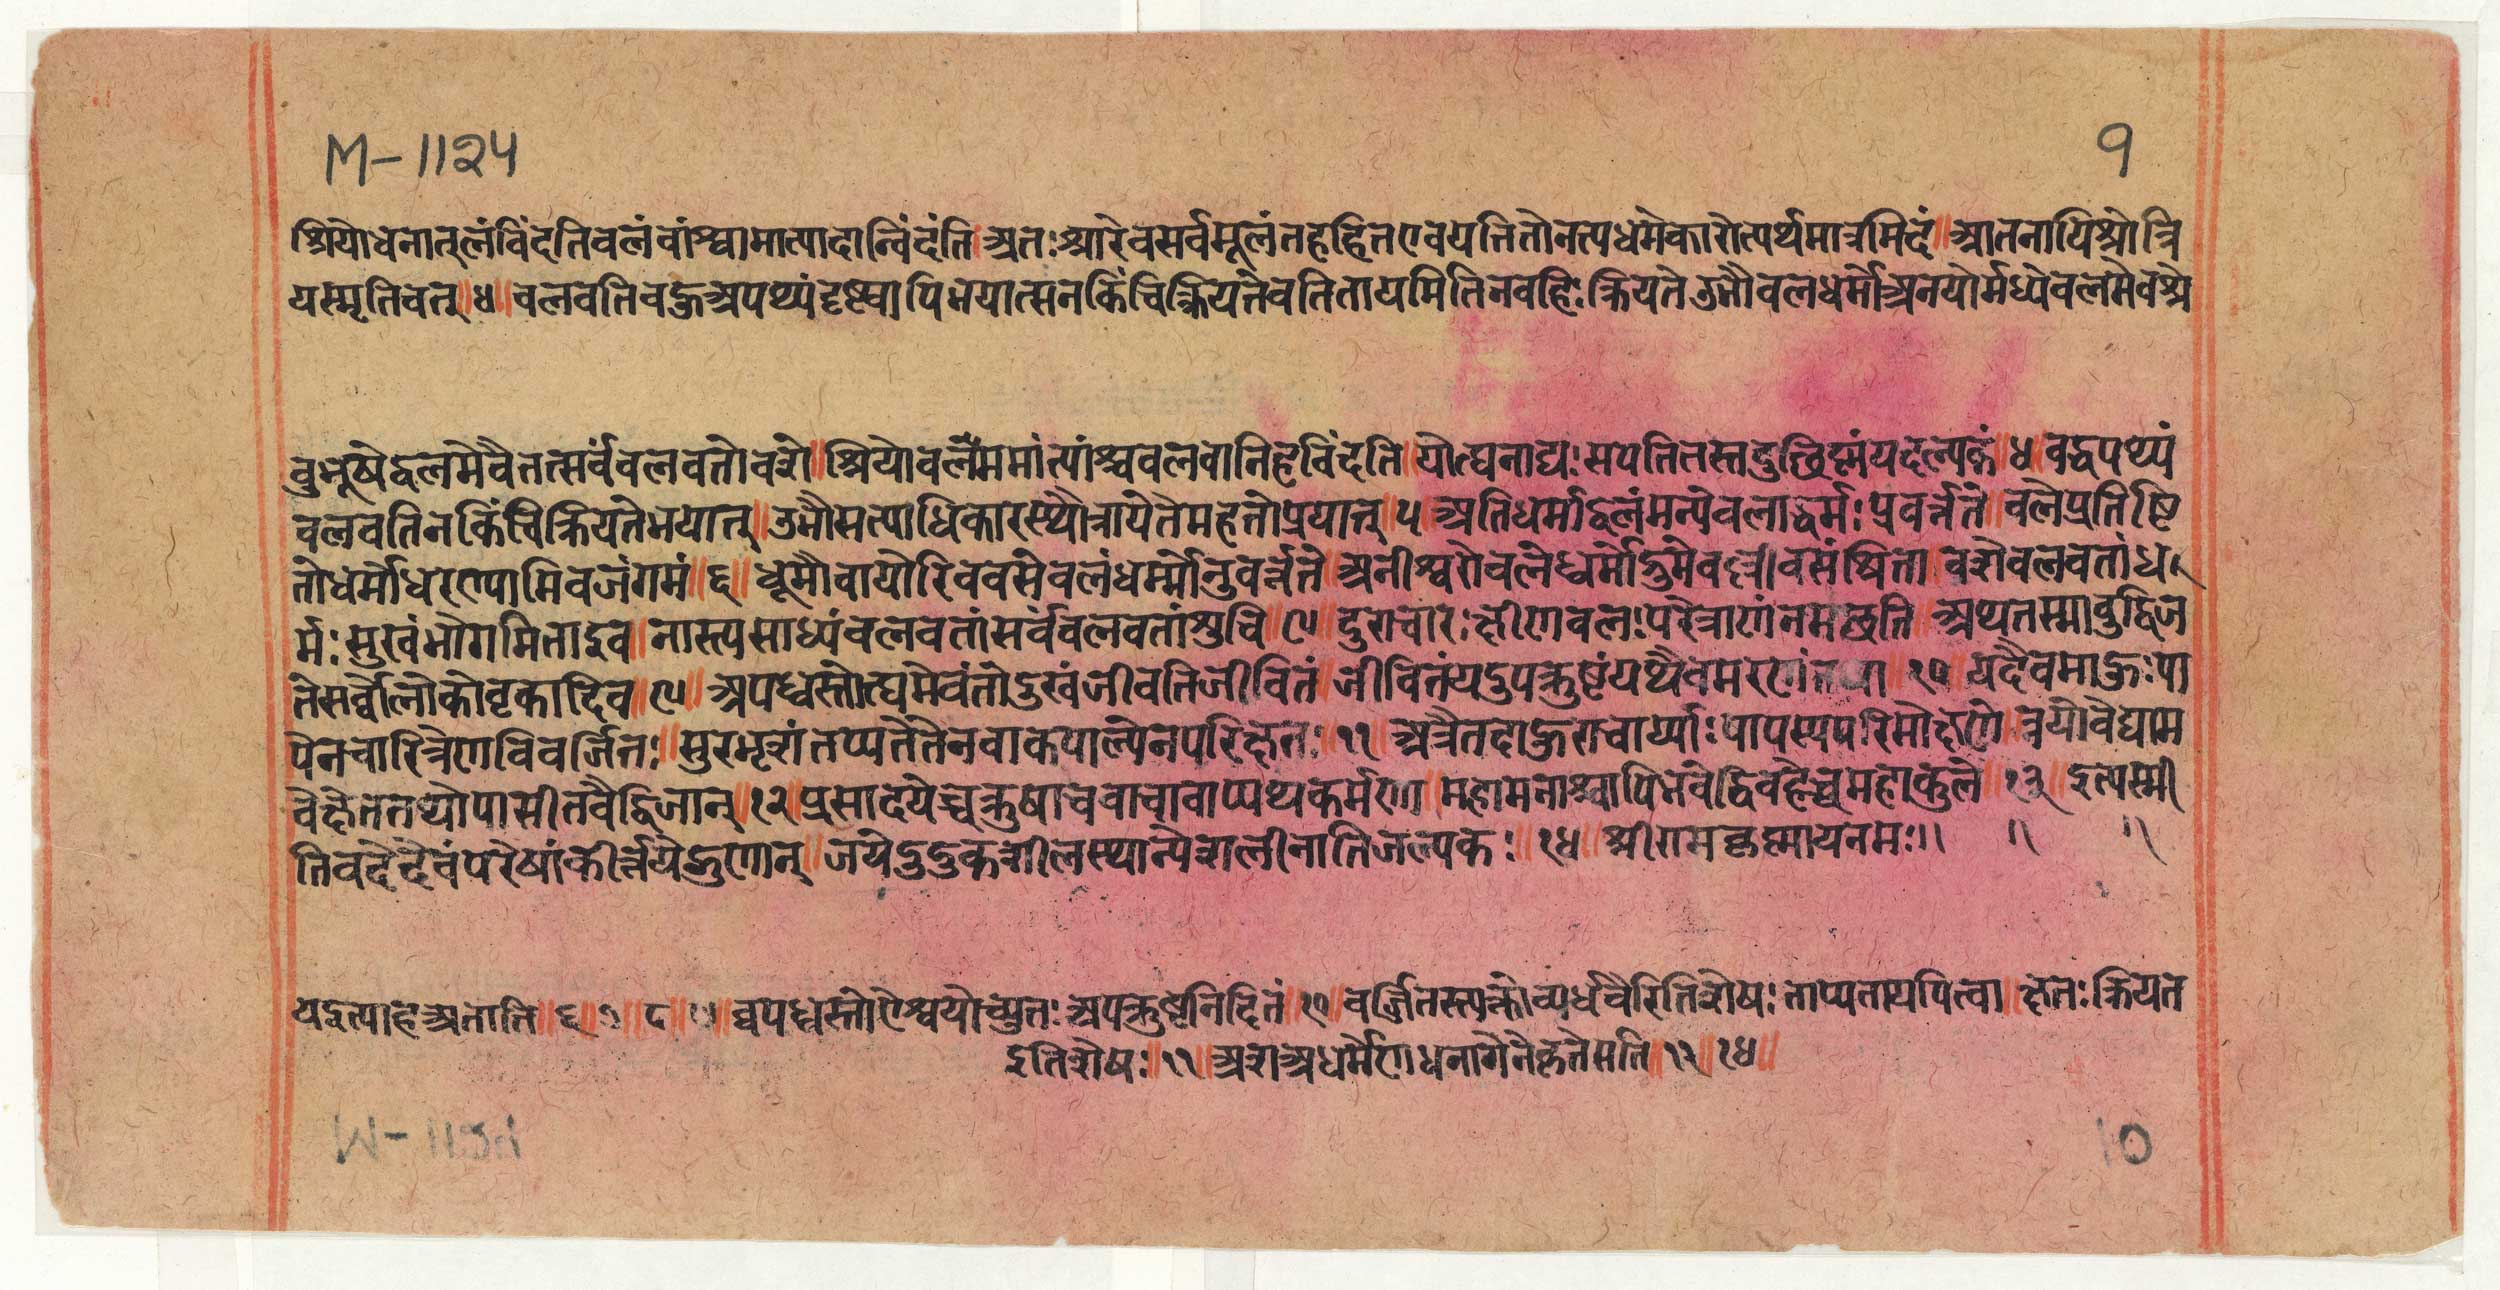 M-1124
9
श्रियोधनातुलंविंदतिवलंवांश्चामात्यादान्विंदंति॥अतःश्रारेवसर्वमूलंतहहितएवयत्तितोनत्पधमेकारोत्पर्थमात्रमिदं॥आतनायिश्रोत्रि
यस्मृतिवत्॥४॥वलवतिवह्रुअपथ्यंदृष्ट्वापिभयात्सनकिंचित्क्रियतेवतितायमितिनवहिःक्रियतेउभौवलधर्मोअनयोर्मध्येवलमेवश्रे
वुभूषेद्वलमेवैतत्सर्वंवलवतोवशे॥श्रियोवलममांत्यांश्चवलवानिहविंदति॥योत्घनाद्यःसपतितस्तदुछिष्टंयदल्पकं॥४॥वह्वपथ्यं
वलवतिनकिंचित्क्रियतेभयात्॥उभौसत्याधिकारस्थौत्रायेतेमहतोभयात्॥५॥अतिधर्माद्वलंमन्येवलाद्धर्मःप्रवर्त्तते॥वलेप्रतिष्ठि
तोधर्मोधरण्यामिवजंगमं॥६॥धूमोवायोरिववसेवलंधर्म्मोनुवर्त्तते॥अनीश्वरोवलेधर्मोद्रुमेवल्लीवसंश्रिता॥वशेवलवतांध
र्मःसुखंभोगमितादूव॥नास्त्यसाध्यंवलवतांसर्वंवलवतांशुचि॥७॥दुराचारःक्षीणवलःपरित्राणंनगछति॥अथतस्मावुद्विज
तेसर्वोलोकोवृकादिव॥९॥अपध्वस्तोत्घमेवंतोदुखंजीवतिजीवितं॥जीवितंयदुपक्रुष्टंयथैवमरणंतथा॥१०॥यदेवमाहुःपा
पेनचारित्रेणविवर्जितः॥सुरभृशंतप्यतेतेनवाकपाल्येनपरिक्षतः॥११॥अत्रैतदाहुराचार्य्याःपापस्यपरिमोक्षणे॥त्रयींवैद्याम
वेक्षेततथोपासीतवैद्विजान्॥१२॥प्रसादयेच्चक्षुषाचवाचावाप्यथकर्मणा॥महामनाश्चापिभवेद्विवहेच्चमहाकुले॥१३॥इत्यस्मी
तिवदेदेवंपरेषांकीर्त्तयेद्गुणान्॥जपेदुदकशीलस्यान्पेशलोनातिजल्पकः॥१४॥श्रीरामकृष्णायनमः॥ ॥ ॥
यद्वत्पाहअतानि॥६॥७॥८॥९॥व्वपध्वस्तोऐश्वर्योच्युतःअपक्रुष्टंनिंदितं॥१०॥वर्जितस्त्यक्तोव्यर्धवैरितिशेषःताप्यतायपित्वा॥क्षतःक्रियत
इतिशेषः॥११॥अशअधर्मेणधनागेनेकृतेसति॥१२॥१४॥